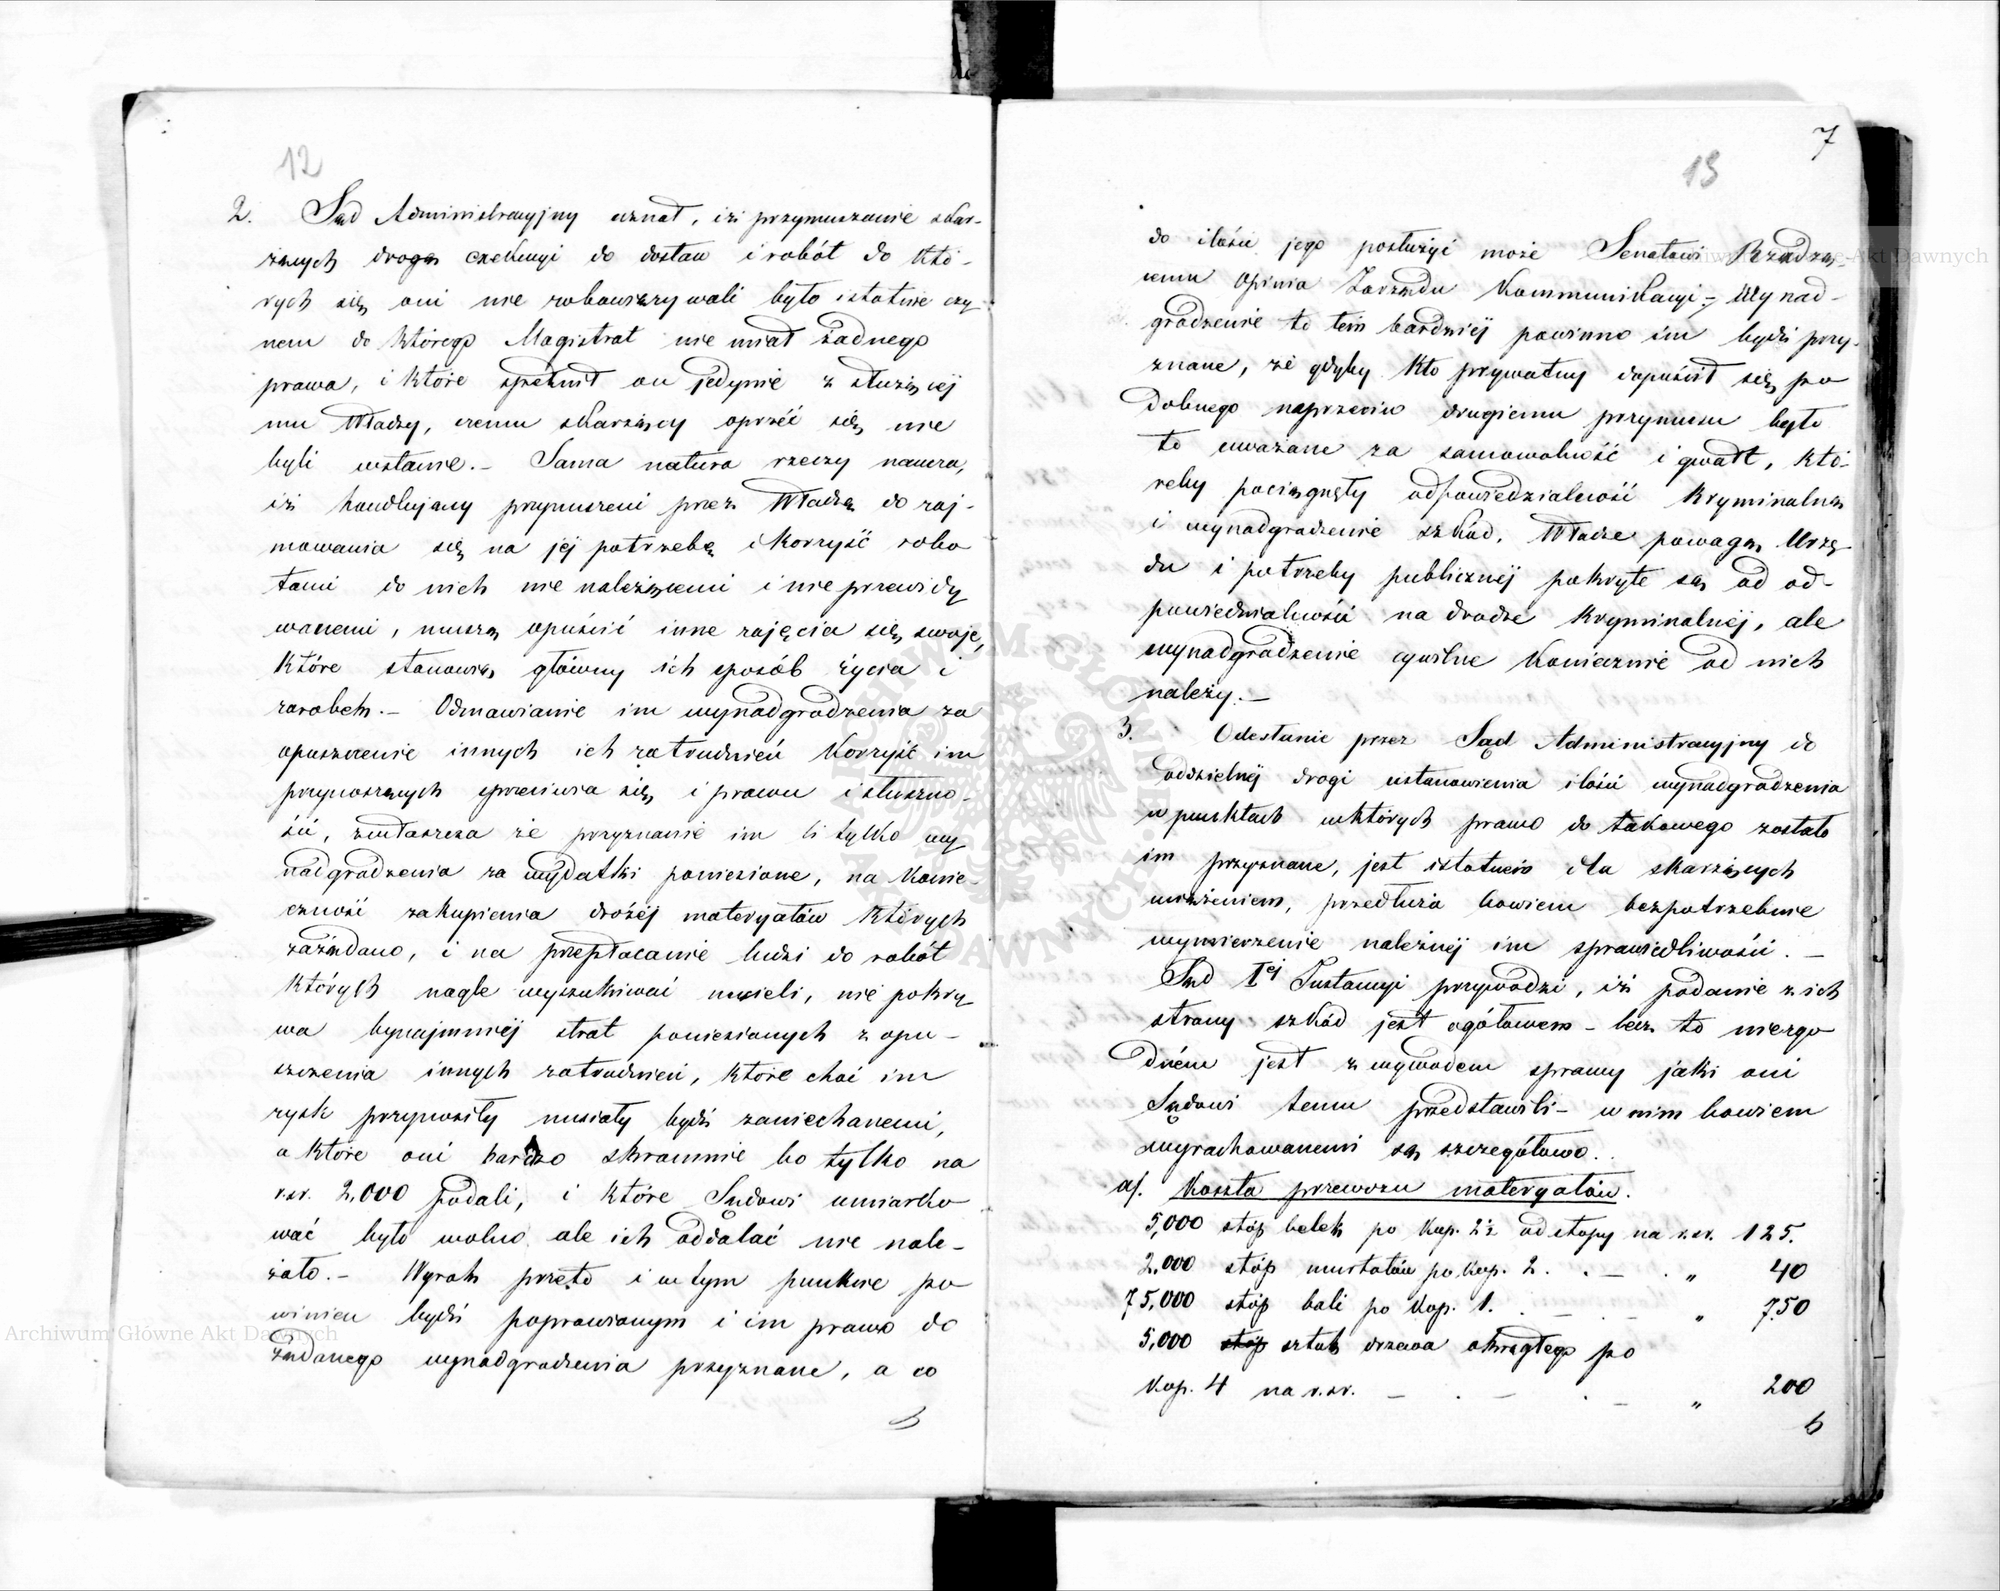 12
2. Sąd Administracyjny uznał, iż przymuszanie skar-
żących drogą exekucyi do dostaw i robót do któ-
rych się oni nie zobowiązywali było istotnie czy-
nem do którego Magistrat nie miał żadnego
prawa, i które spełnił on jedynie z służącej
mu Władzy, czemu skarżący oprzéć się nie
byli wstanie. – Sama natura rzeczy naucza,
iż handlujący przymuszeni przez Władzę do zaj-
mowania się na jej potrzebę i korzyść robo
tami do nich nie należącemi i nieprzewidy
wanemi, muszą opuścić inne zajęcia się swoje,
które stanowią główny ich sposób życia i
zarobek. – Odmawianie im wynadgrodzenia za
opuszczenie innych ich zatrudnień korzyść im
przynoszących sprzeciwia się i prawu i słuszno-
ści, zwłaszcza że przyznanie im li tylko wy
nadgrodzenia za wydatki poniesione, na konie-
czność zakupienia drożéj materyałów których
zażądano, i na przepłacanie ludzi do robót
których nagle wyszukiwać musieli, nie pokry
wa bynajmniéj strat poniesionych z opu-
szczenia innych zatrudnień, które choć im
zysk przynosiły musiały bydź zaniechanemi,
a które oni bardzo skromnie bo tylko na
r.sr. 2,000 podali, i które Sądowi umiarko
wać było wolno ale ich oddalać nie nale-
żało. – Wyrok przeto i w tym punkcie po
winien bydź poprawionym i im prawo do
żądanego wynadgrodzenia przyznane, a co
7
13
do ilości jego posłużyć może Senatowi Rządzą-
cemu Opinia Zarządu Kommunikacyi – Wynad-
grodzenie to tém bardziéj powinno im bydź przy-
znane, że gdyby kto prywatny dopuścił się po
dobnego naprzeciw drugiemu przymusu było
to uważane za samowolność i gwałt, któ-
reby pociągnęły odpowiedzialność kryminalną
i wynadgrodzenie szkód. Władze powagą Urzę
du i potrzeby publicznéj pokryte są od od-
powiedzialności na drodze kryminalnéj, ale
wynadgrodzenie cywilne koniecznie od nich
należy. –
3. Odesłanie przez Sąd Administracyjny do
oddzielnéj drogi ustanowienia ilości wynadgrodzenia
w punktach wktórych prawo do takowego zostało
im przyznane, jest istotném dla skarżących
uciążeniem, przedłuża bowiem bezpotrzebnie
wymierzenie należnéj im sprawiedliwości. –
Sąd Iej Instancyi przywodzi, iż podanie z ich
strony szkód jest ogółowem – lecz to niezgo
dném jest z wywodem sprawy jaki oni
Sądowi temu przedstawili – w nim bowiem
wyrachowanemi są szczegółowo.
a/. Koszta przewozu materyałów.
5,000 stóp belek po kop. 2½ od stopy na r.sr. 125.
2,000 stóp murłatów po kop. 2. . — . „ 40
75,000 stóp bali po kop. 1. . — . „ 750
5,000 stóp sztuk drzewa okrągłego po
kop. 4 na r.sr. — . — . — „ 200